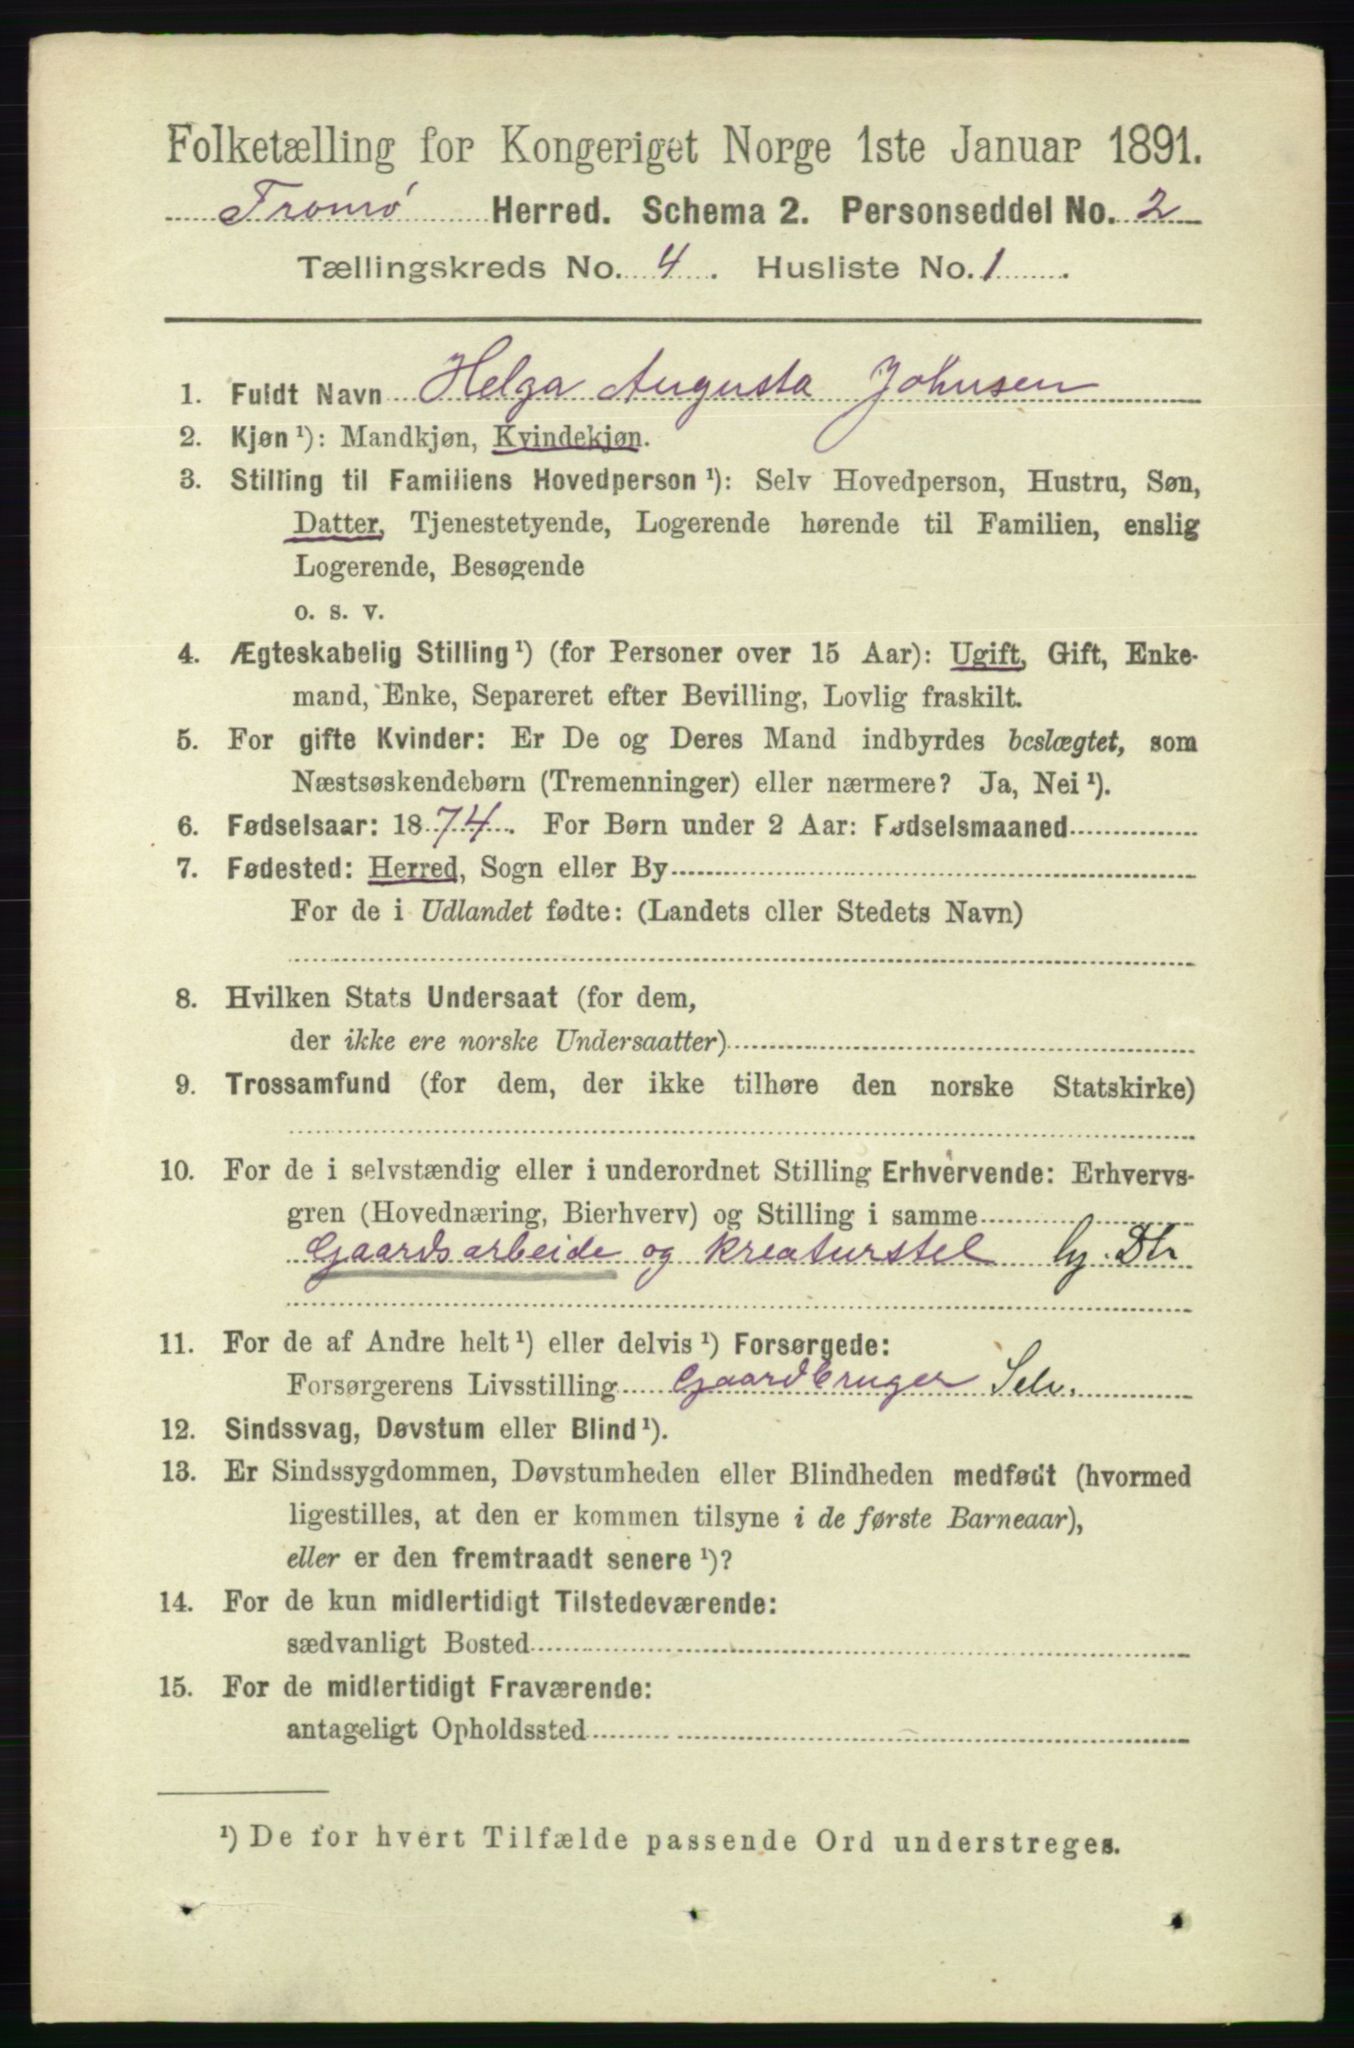 Folketælling for Kongeriget Norge 1ste Januar 1891.
Tromø Herred. Schema 2. Personseddel No. 2
Tællingskreds No. 4. Husliste No. 1.
1. Fuldt Navn Helga Augusta Johnsen
2. Kjøn ¹): Mandkjøn, Kvindekjøn.
3. Stilling til Familiens Hovedperson ¹): Selv Hovedperson, Hustru, Søn,
Datter, Tjenestetyende, Logerende hørende til Familien, enslig
Logerende, Besøgende
o. s. v.
4. Ægteskabelig Stilling ¹) (for Personer over 15 Aar): Ugift, Gift, Enke-
mand, Enke, Separeret efter Bevilling, Lovlig fraskilt.
5. For gifte Kvinder: Er De og Deres Mand indbyrdes beslægtet, som
Næstsøskendebørn (Tremenninger) eller nærmere? Ja, Nei ¹).
6. Fødselsaar: 1874. For Børn under 2 Aar: Fødselsmaaned
7. Fødested: Herred, Sogn eller By
For de i Udlandet fødte: (Landets eller Stedets Navn)
8. Hvilken Stats Undersaat (for dem,
der ikke ere norske Undersaatter)
9. Trossamfund (for dem, der ikke tilhøre den norske Statskirke)
10. For de i selvstændig eller i underordnet Stilling Erhvervende: Erhvervs-
gren (Hovednæring, Bierhverv) og Stilling i samme
Gaardsarbeide og kreaturstel hj. Dtr
11. For de af Andre helt ¹) eller delvis ¹) Forsørgede:
Forsørgerens Livsstilling Gaardbruger Selv.
12. Sindssvag, Døvstum eller Blind ¹).
13. Er Sindssygdommen, Døvstumheden eller Blindheden medfødt (hvormed
ligestilles, at den er kommen tilsyne i de første Barneaar),
eller er den fremtraadt senere ¹)?
14. For de kun midlertidigt Tilstedeværende:
sædvanligt Bosted
15. For de midlertidigt Fraværende:
antageligt Opholdssted
¹) De for hvert Tilfælde passende Ord understreges.